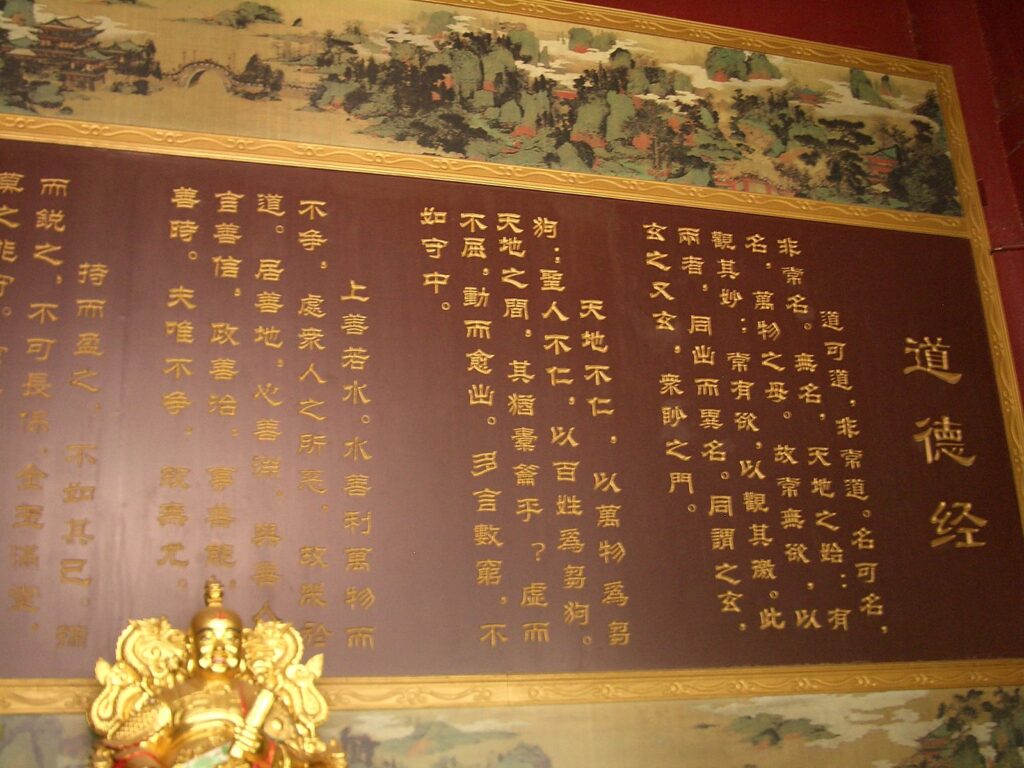 道德经
道可道，非常道。名可名，
非常名。無名，天地之始：有
名，萬物之母。故常無欲，以
觀其妙：常有欲，以觀其徼。此
兩者，同出而異名。同謂之玄，
玄之又玄，衆眇之門。
天地不仁，以萬物爲芻
狗；聖人不仁，以百姓爲芻狗。
天地之間，其猶橐籥乎？虛而
不屈，動而愈出。多言數窮，不
如守中。
上善若水。水善利萬物而
不争，處衆人之所惡，故幾於
道。居善地，心善淵，與善人
言善信，政善治，事善能，
善時。夫唯不争，故無尤。
持而盈之，不如其已。
而銳之，不可長保，金玉滿堂，
莫之能守。